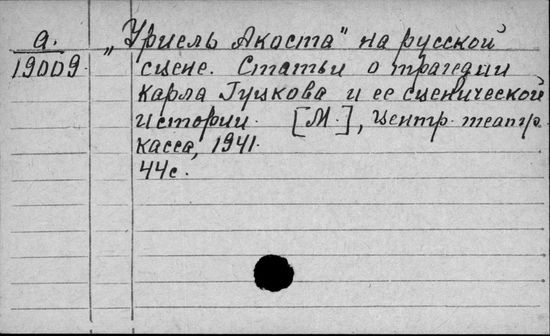 а.
19009.
„Уриель Акоста" на русской
сцене. Статьи о трагедии
Карла Гуцкова и ее сценической
истории. [М.], Центр. театр.
касса, 1941.
44с.